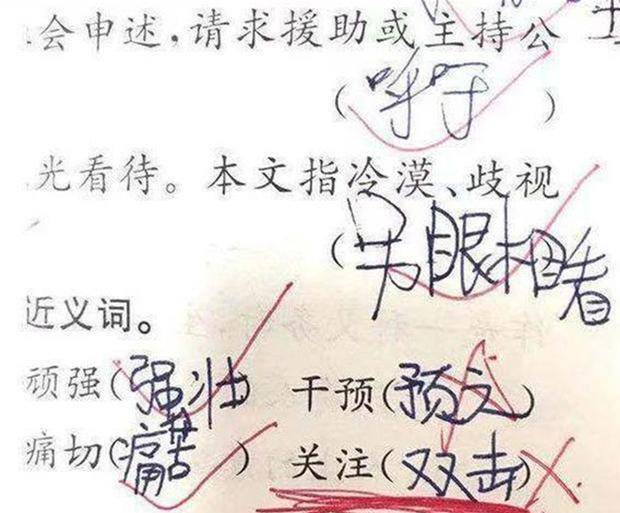 会申述,请求援助或主持公
(呼吁)
光看待。本文指冷漠、歧视
(另眼相看
近义词。
顽强(强壮 干预(预文)
痛切(痛苦) 关注(双击)